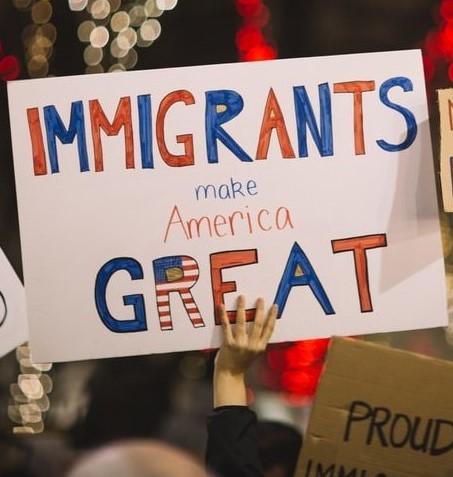 IMMIGRANTS
make
America
GREAT
PROUD